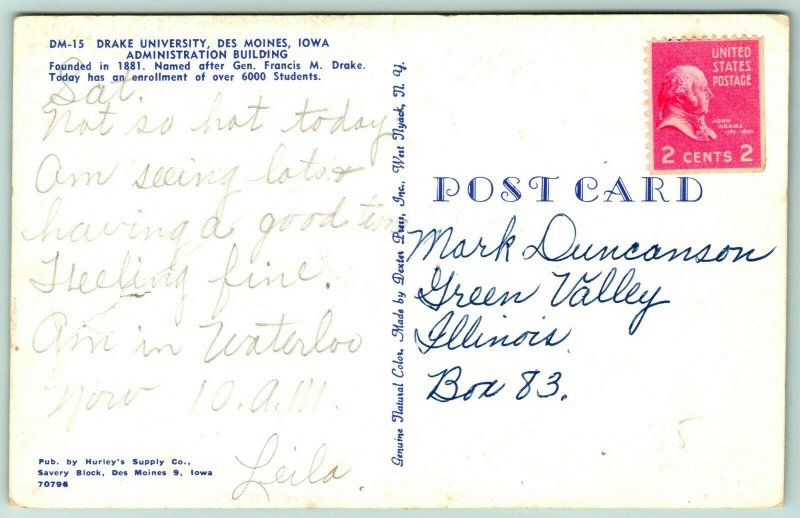 DM-15 DRAKE UNIVERSITY, DES MOINES, IOWA
ADMINISTRATION BUILDING
Founded in 1881. Named after Gen. Francis M. Drake.
Today has an enrollment of over 6000 Students.
Sat.
Not so hot today
Am seeing lots &
having a good time
Feeling fine.
Am in Waterloo
now 10. A.M.
Leila
Pub. by Hurley's Supply Co.,
Savery Block, Des Moines 9, Iowa
70796
Genuine Natural Color. Made by Dexter Press, Inc., West Nyack, N. Y.
UNITED
STATES
POSTAGE
JOHN
ADAMS
1797-1801
2 CENTS 2
POST CARD
Mark Duncanson
Green Valley
Illinois
Box 83.
5